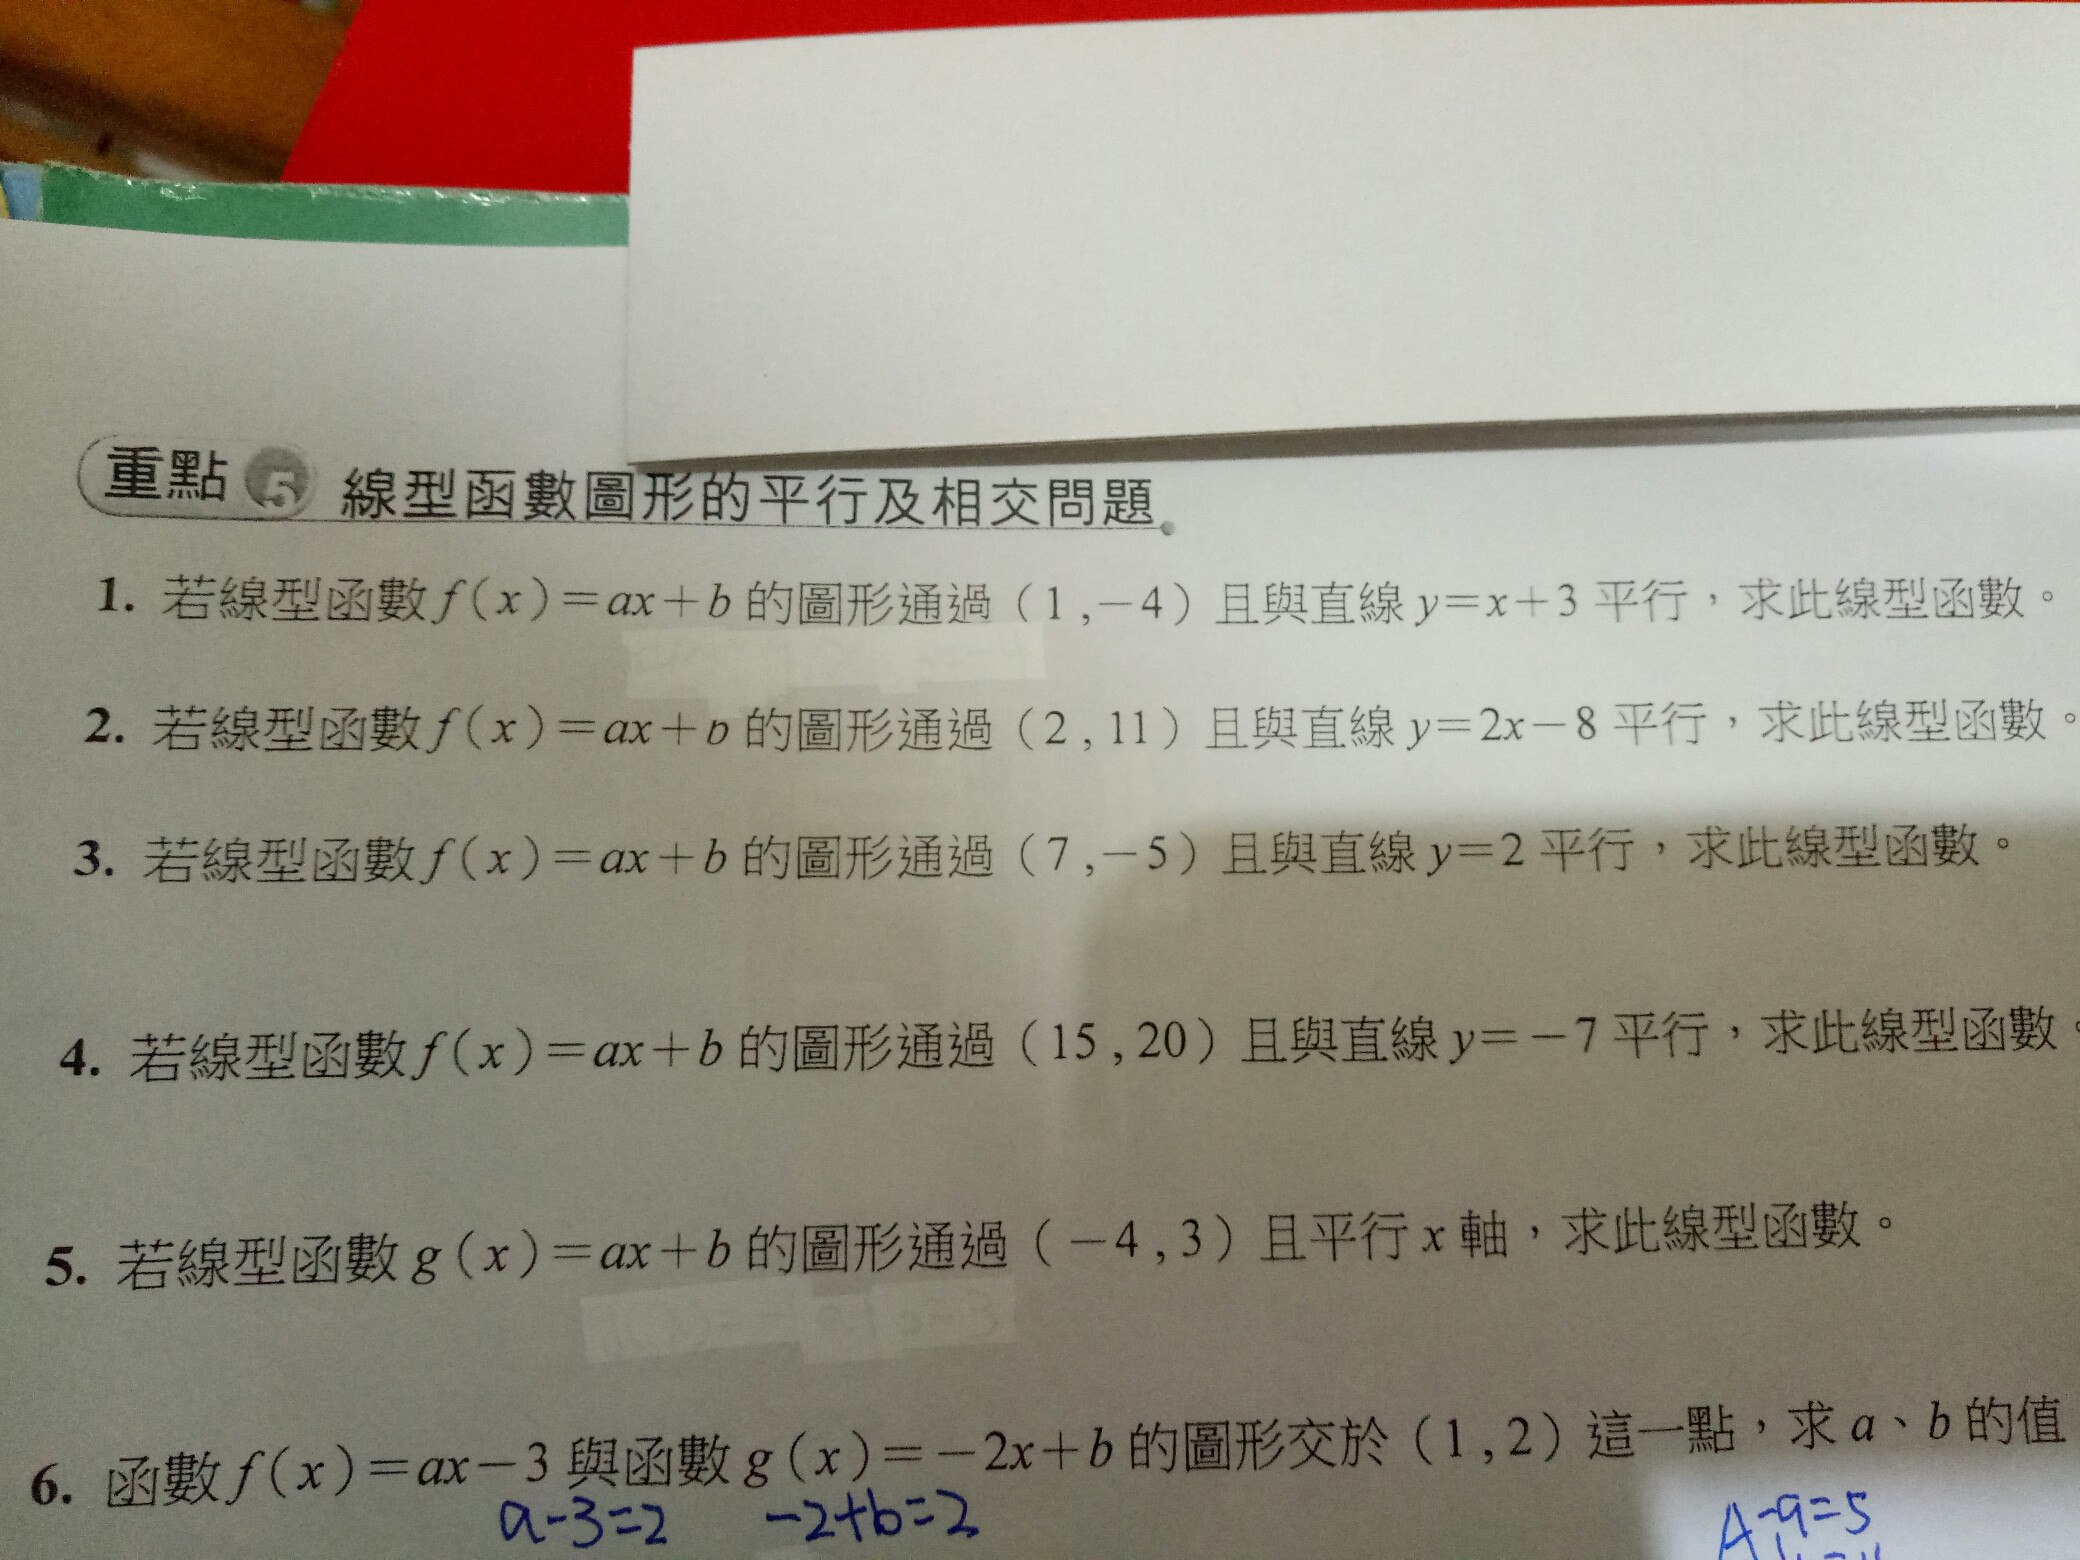 重點 5 線型函數圖形的平行及相交問題
1. 若線型函數 f(x)=ax+b 的圖形通過(1,-4)且與直線 y=x+3 平行,求此線型函數。
2. 若線型函數 f(x)=ax+b 的圖形通過(2,11)且與直線 y=2x-8 平行,求此線型函數。
3. 若線型函數 f(x)=ax+b 的圖形通過(7,-5)且與直線 y=2 平行,求此線型函數。
4. 若線型函數 f(x)=ax+b 的圖形通過(15,20)且與直線 y=-7 平行,求此線型函數。
5. 若線型函數 g(x)=ax+b 的圖形通過(-4,3)且平行 x 軸,求此線型函數。
6. 函數 f(x)=ax-3 與函數 g(x)=-2x+b 的圖形交於(1,2)這一點,求 a、b 的值
a-3=2 -2+b=2
A a=5